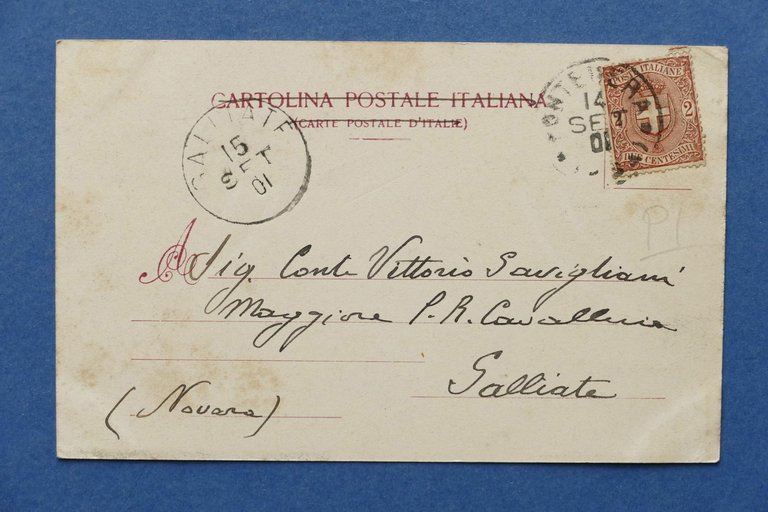 CARTOLINA POSTALE ITALIANA
(CARTE POSTALE D'ITALIE)
POSTE ITALIANE
2
DUE CENTESIMI
14
SET
01
GALLIATE
15
SET
01
P1
A Sig. Conte Vittorio Savigliani
Maggiore P. R. Cavalleria
Galliate
(Novara)